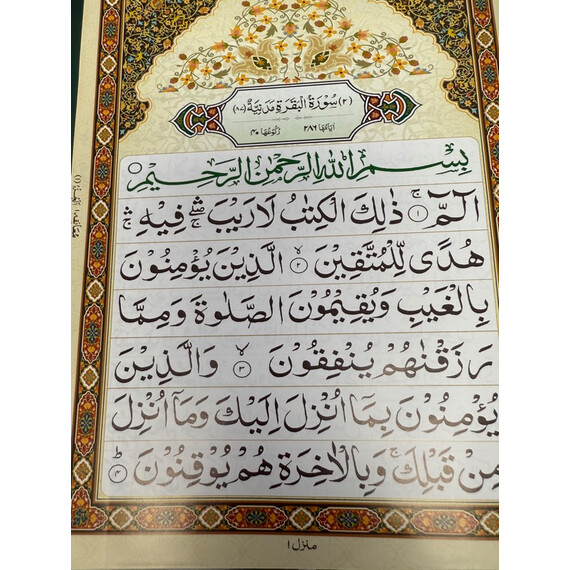 (٢) سُوْرَةُ الْبَقَرَةِ مَدَنِيَّةٌ (٨٧)
اٰيَاتُهَا ٢٨٦ رُكُوْعُهَا ٤٠
بِسْمِ اللّٰهِ الرَّحْمٰنِ الرَّحِيْمِ
الٓمّٓ ۚ ﴿١﴾ ذٰلِكَ الْكِتٰبُ لَا رَيْبَ ۛۖ فِيْهِ ۛۚ
هُدًى لِّلْمُتَّقِيْنَ ۙ ﴿٢﴾ الَّذِيْنَ يُؤْمِنُوْنَ
بِالْغَيْبِ وَيُقِيْمُوْنَ الصَّلٰوةَ وَمِمَّا
رَزَقْنٰهُمْ يُنْفِقُوْنَ ۙ ﴿٣﴾ وَالَّذِيْنَ
يُؤْمِنُوْنَ بِمَاۤ اُنْزِلَ اِلَيْكَ وَمَاۤ اُنْزِلَ
مِنْ قَبْلِكَ ۚ وَبِالْاٰخِرَةِ هُمْ يُوْقِنُوْنَ ؕ ﴿٤﴾
منزل ١